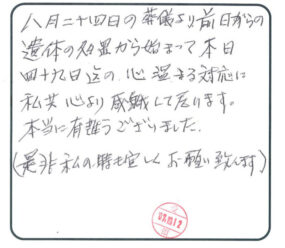 八月二十四日の葬儀より前日からの
遺体の処置から始まって本日
四十九日迄の心温まる対応に
私共心より感銘して居ります。
本当に有難うございました。
(是非私の時も宜しくお願い致します)